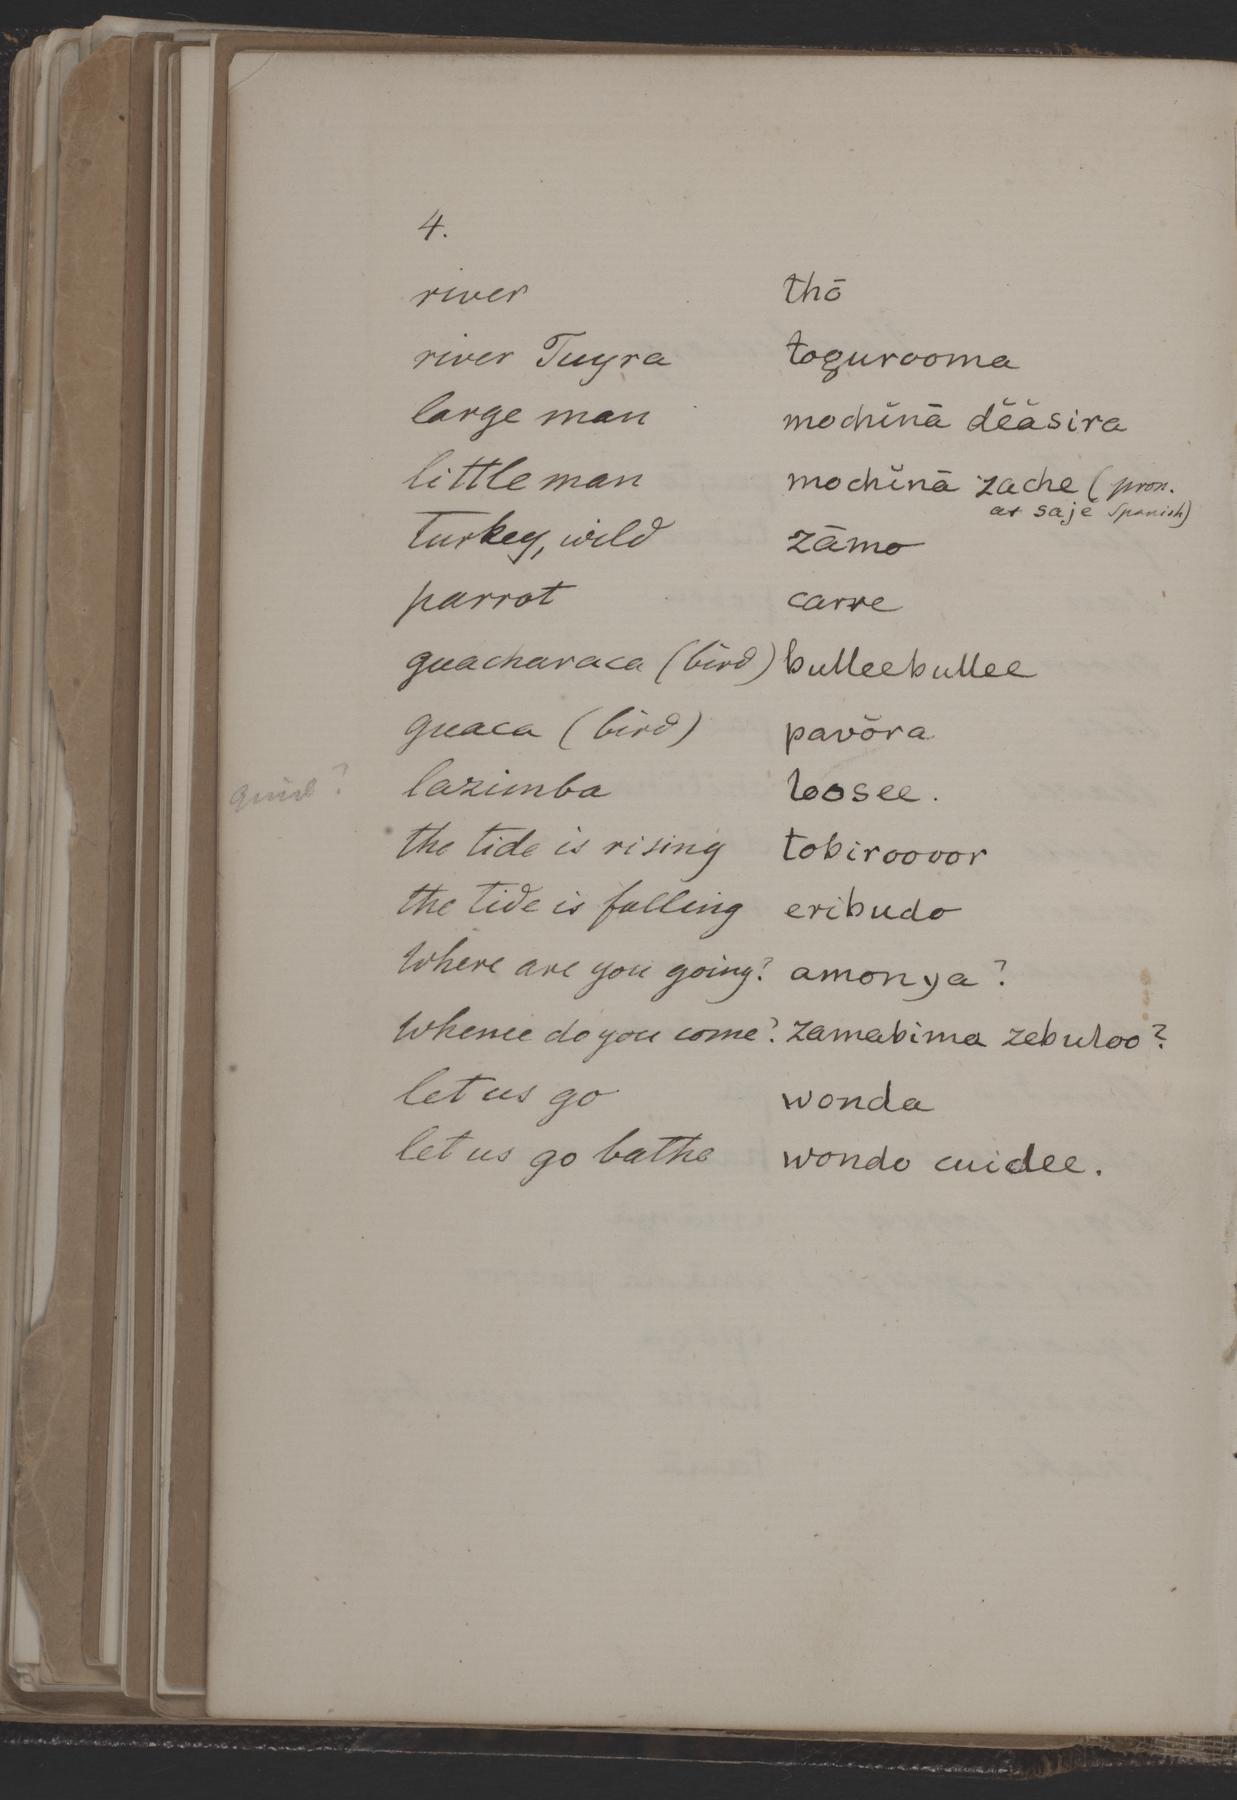 4.
river thō
river Tuyra togurooma
large man mochĭnā dĕăsira
little man mochĭnā zache (pron.
as sajé Spanish)
Turkey, wild zāmo
parrot carre
guacharaca (bird) bulleebullee
guaca (bird) pavŏra
quid? lazimba loosee.
the tide is rising tobiroovor
the tide is falling eribudo
Where are you going? amonya?
Whence do you come? zamabima zebuloo?
let us go wonda
let us go bathe wondo cuidee.